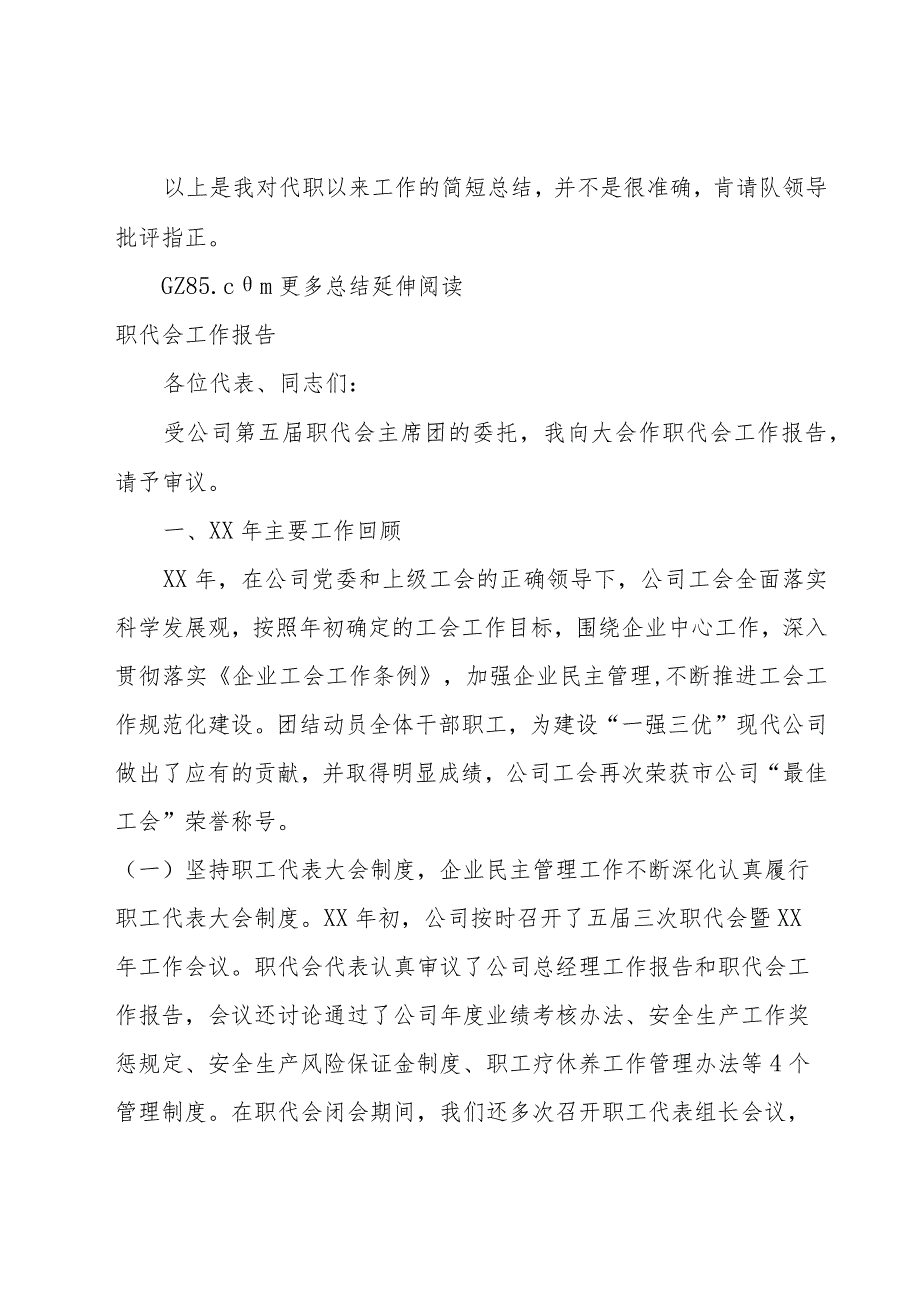 以上是我对代职以来工作的简短总结，并不是很准确，肯请队领导
批评指正。
GZ85.cθm更多总结延伸阅读
职代会工作报告
各位代表、同志们：
受公司第五届职代会主席团的委托，我向大会作职代会工作报告，
请予审议。
一、XX年主要工作回顾
XX年，在公司党委和上级工会的正确领导下，公司工会全面落实
科学发展观，按照年初确定的工会工作目标，围绕企业中心工作，深入
贯彻落实《企业工会工作条例》，加强企业民主管理,不断推进工会工
作规范化建设。团结动员全体干部职工，为建设“一强三优”现代公司
做出了应有的贡献，并取得明显成绩，公司工会再次荣获市公司“最佳
工会”荣誉称号。
（一）坚持职工代表大会制度，企业民主管理工作不断深化认真履行
职工代表大会制度。XX年初，公司按时召开了五届三次职代会暨XX
年工作会议。职代会代表认真审议了公司总经理工作报告和职代会工
作报告，会议还讨论通过了公司年度业绩考核办法、安全生产工作奖
惩规定、安全生产风险保证金制度、职工疗休养工作管理办法等4个
管理制度。在职代会闭会期间，我们还多次召开职工代表组长会议，